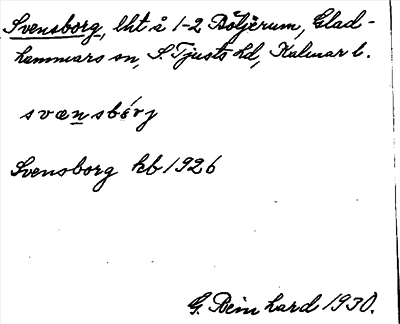 Svensborg, lht å 1-2 Böljerum, Glad-
hammars sn, S. Tjusts hd, Kalmar l.
svænsbérj
Svensborg kb 1926
G. Beinhard 1930.